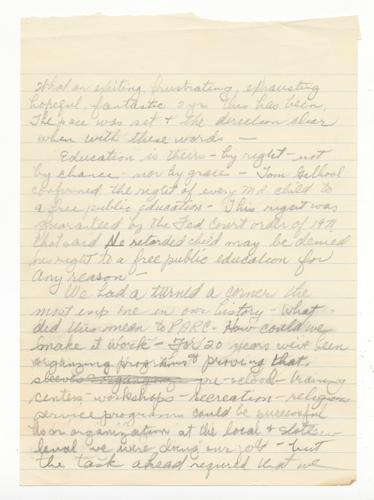 What an exciting, frustrating, exhausting
hopeful, fantastic 2 yrs this has been.
The pace was set & the direction clear
when with these words —
Education is theirs - by right - not
by chance - nor by grace - Tom Gilhool
confirmed the right of every M.R. child to
a free public education - This right was
guaranteed by the Fed Court order of 1971
that said No retarded child may be denied
his right to a free public education for
any reason -
We had a turned a corner the
most imp one in our history - What
did this mean to PARC - How could we
make it work - For 20 years we've been
organizing programs & proving that
pre-school - training
centers - workshops - recreation - religious
service programs could be successful
As an organization at the local & state
level we were doing our job - but
the task ahead required that we